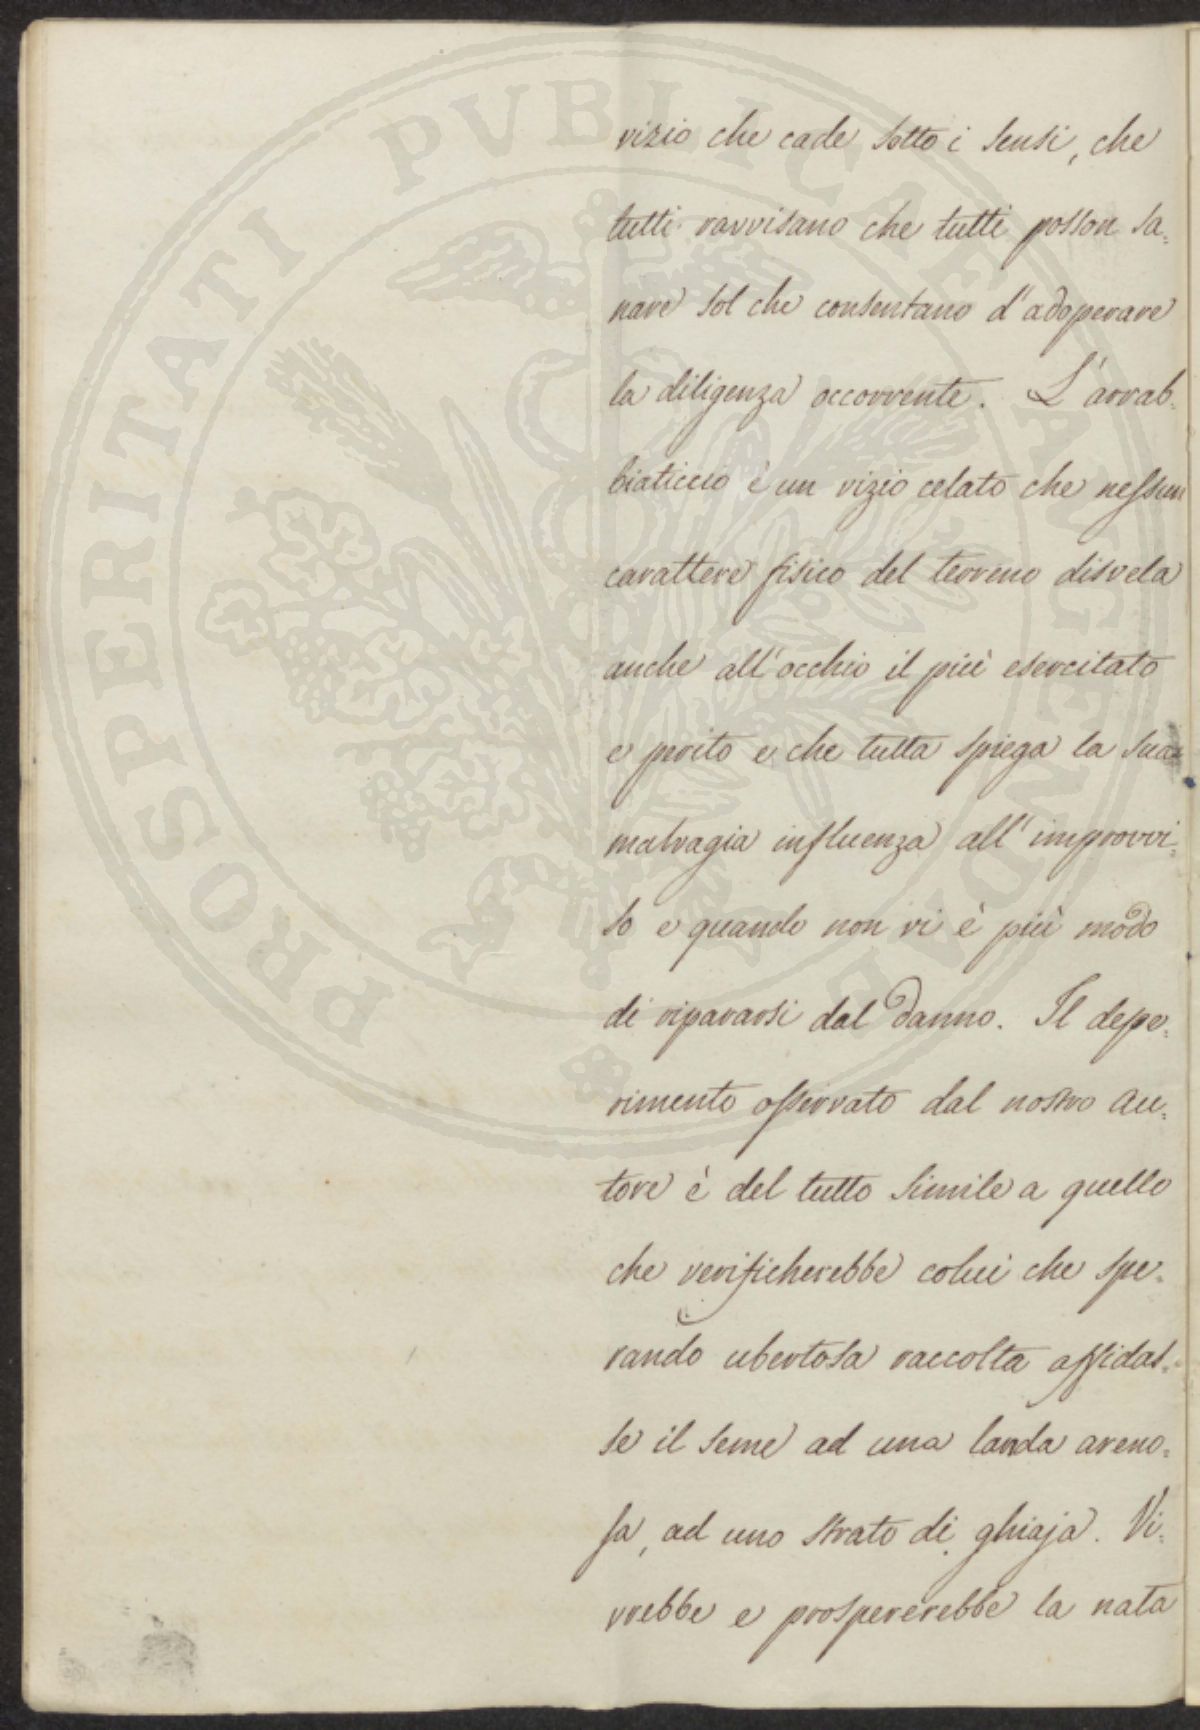 vizio che cade sotto i sensi, che
tutti ravvisano che tutti posson sa=
nare sol che consentano d'adoperare
la diligenza occorrente. L'arrab=
biaticcio è un vizio celato che nessun
carattere fisico del terreno disvela
anche all'occhio il più esercitato
e perito e che tutta spiega la sua
malvagia influenza all'improvvi=
so e quando non vi è più modo
di ripararsi dal danno. Il depe=
rimento osservato dal nostro au=
tore è del tutto simile a quello
che verificherebbe colui che spe=
rando ubertosa raccolta affidas=
se il seme ad una landa areno=
sa, ad uno strato di ghiaja. Vi=
vrebbe e prospererebbe la nata
PROSPERITATI PVBLICAE AVGENDAE